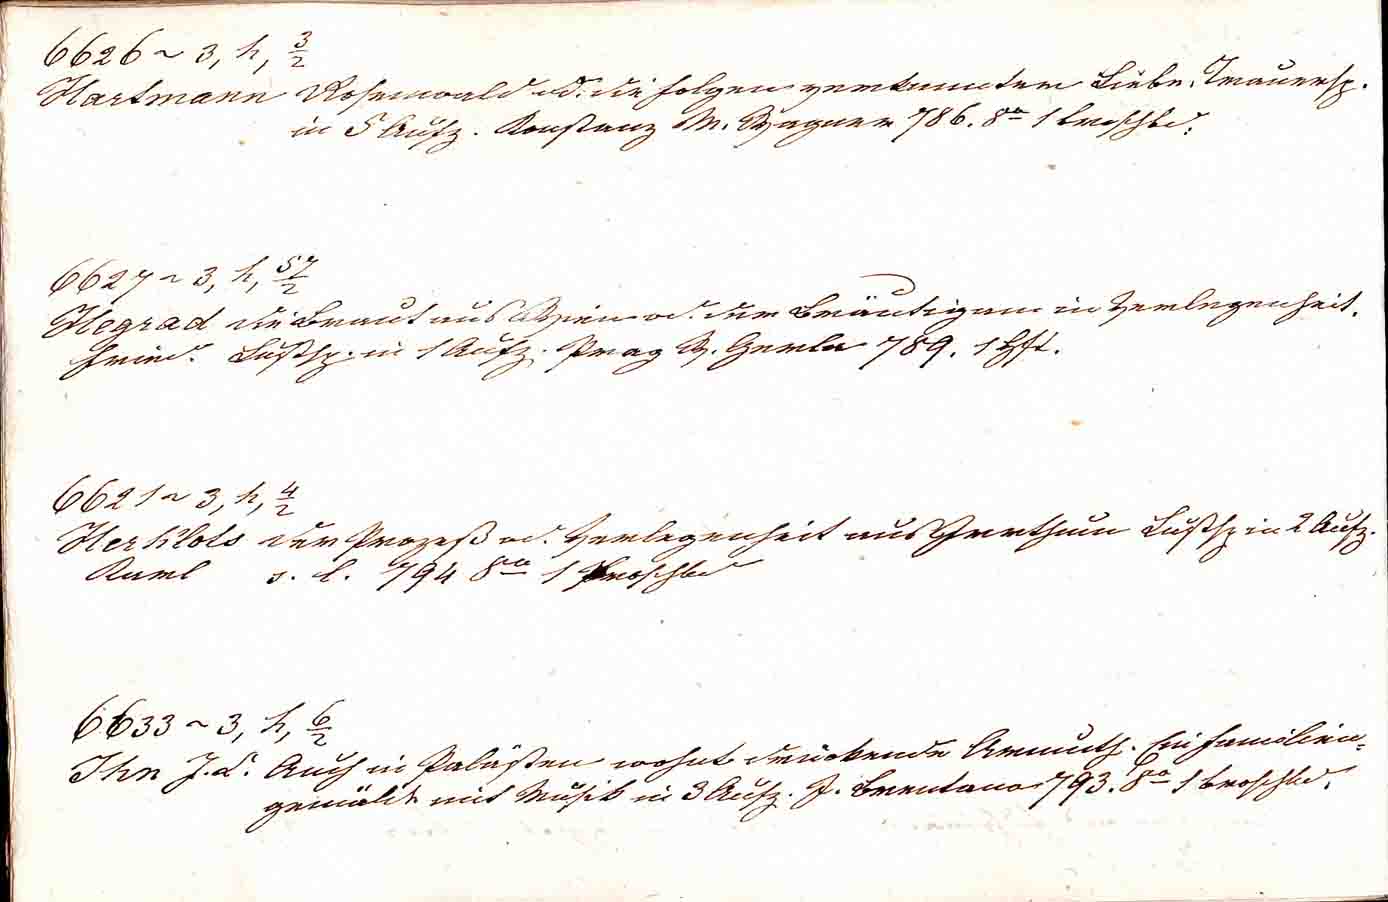 6626 ~ 3, h, 3/2
Hartmann Rosenwald od. die Folgen verkannter Liebe. Trauersp.
in 5 Aufz. Konstanz M. Wagner 786. 8vo 1 broschbd.
6627 ~ 3, h, 57/2
Hegrad die Braut aus Wien od. der Bräutigam in Verlegenheit.
Fried. Lustsp. in 1 Aufz. Prag W. Gerle 789. 1 Hft.
6621 ~ 3, h, 4/2
Herklots der Prozeß od. Verlegenheit aus Irrthum Lustsp in 2 Aufz.
Karl s. l. 794 8vo 1 broschbd
6633 ~ 3, h, 6/2
Ihn J. d. Auch in Palästen wohnt drückende Armuth. Ein Familien=
gemälde mit Musik in 3 Aufz. F. Brentano 793. 8vo 1 broschbd.